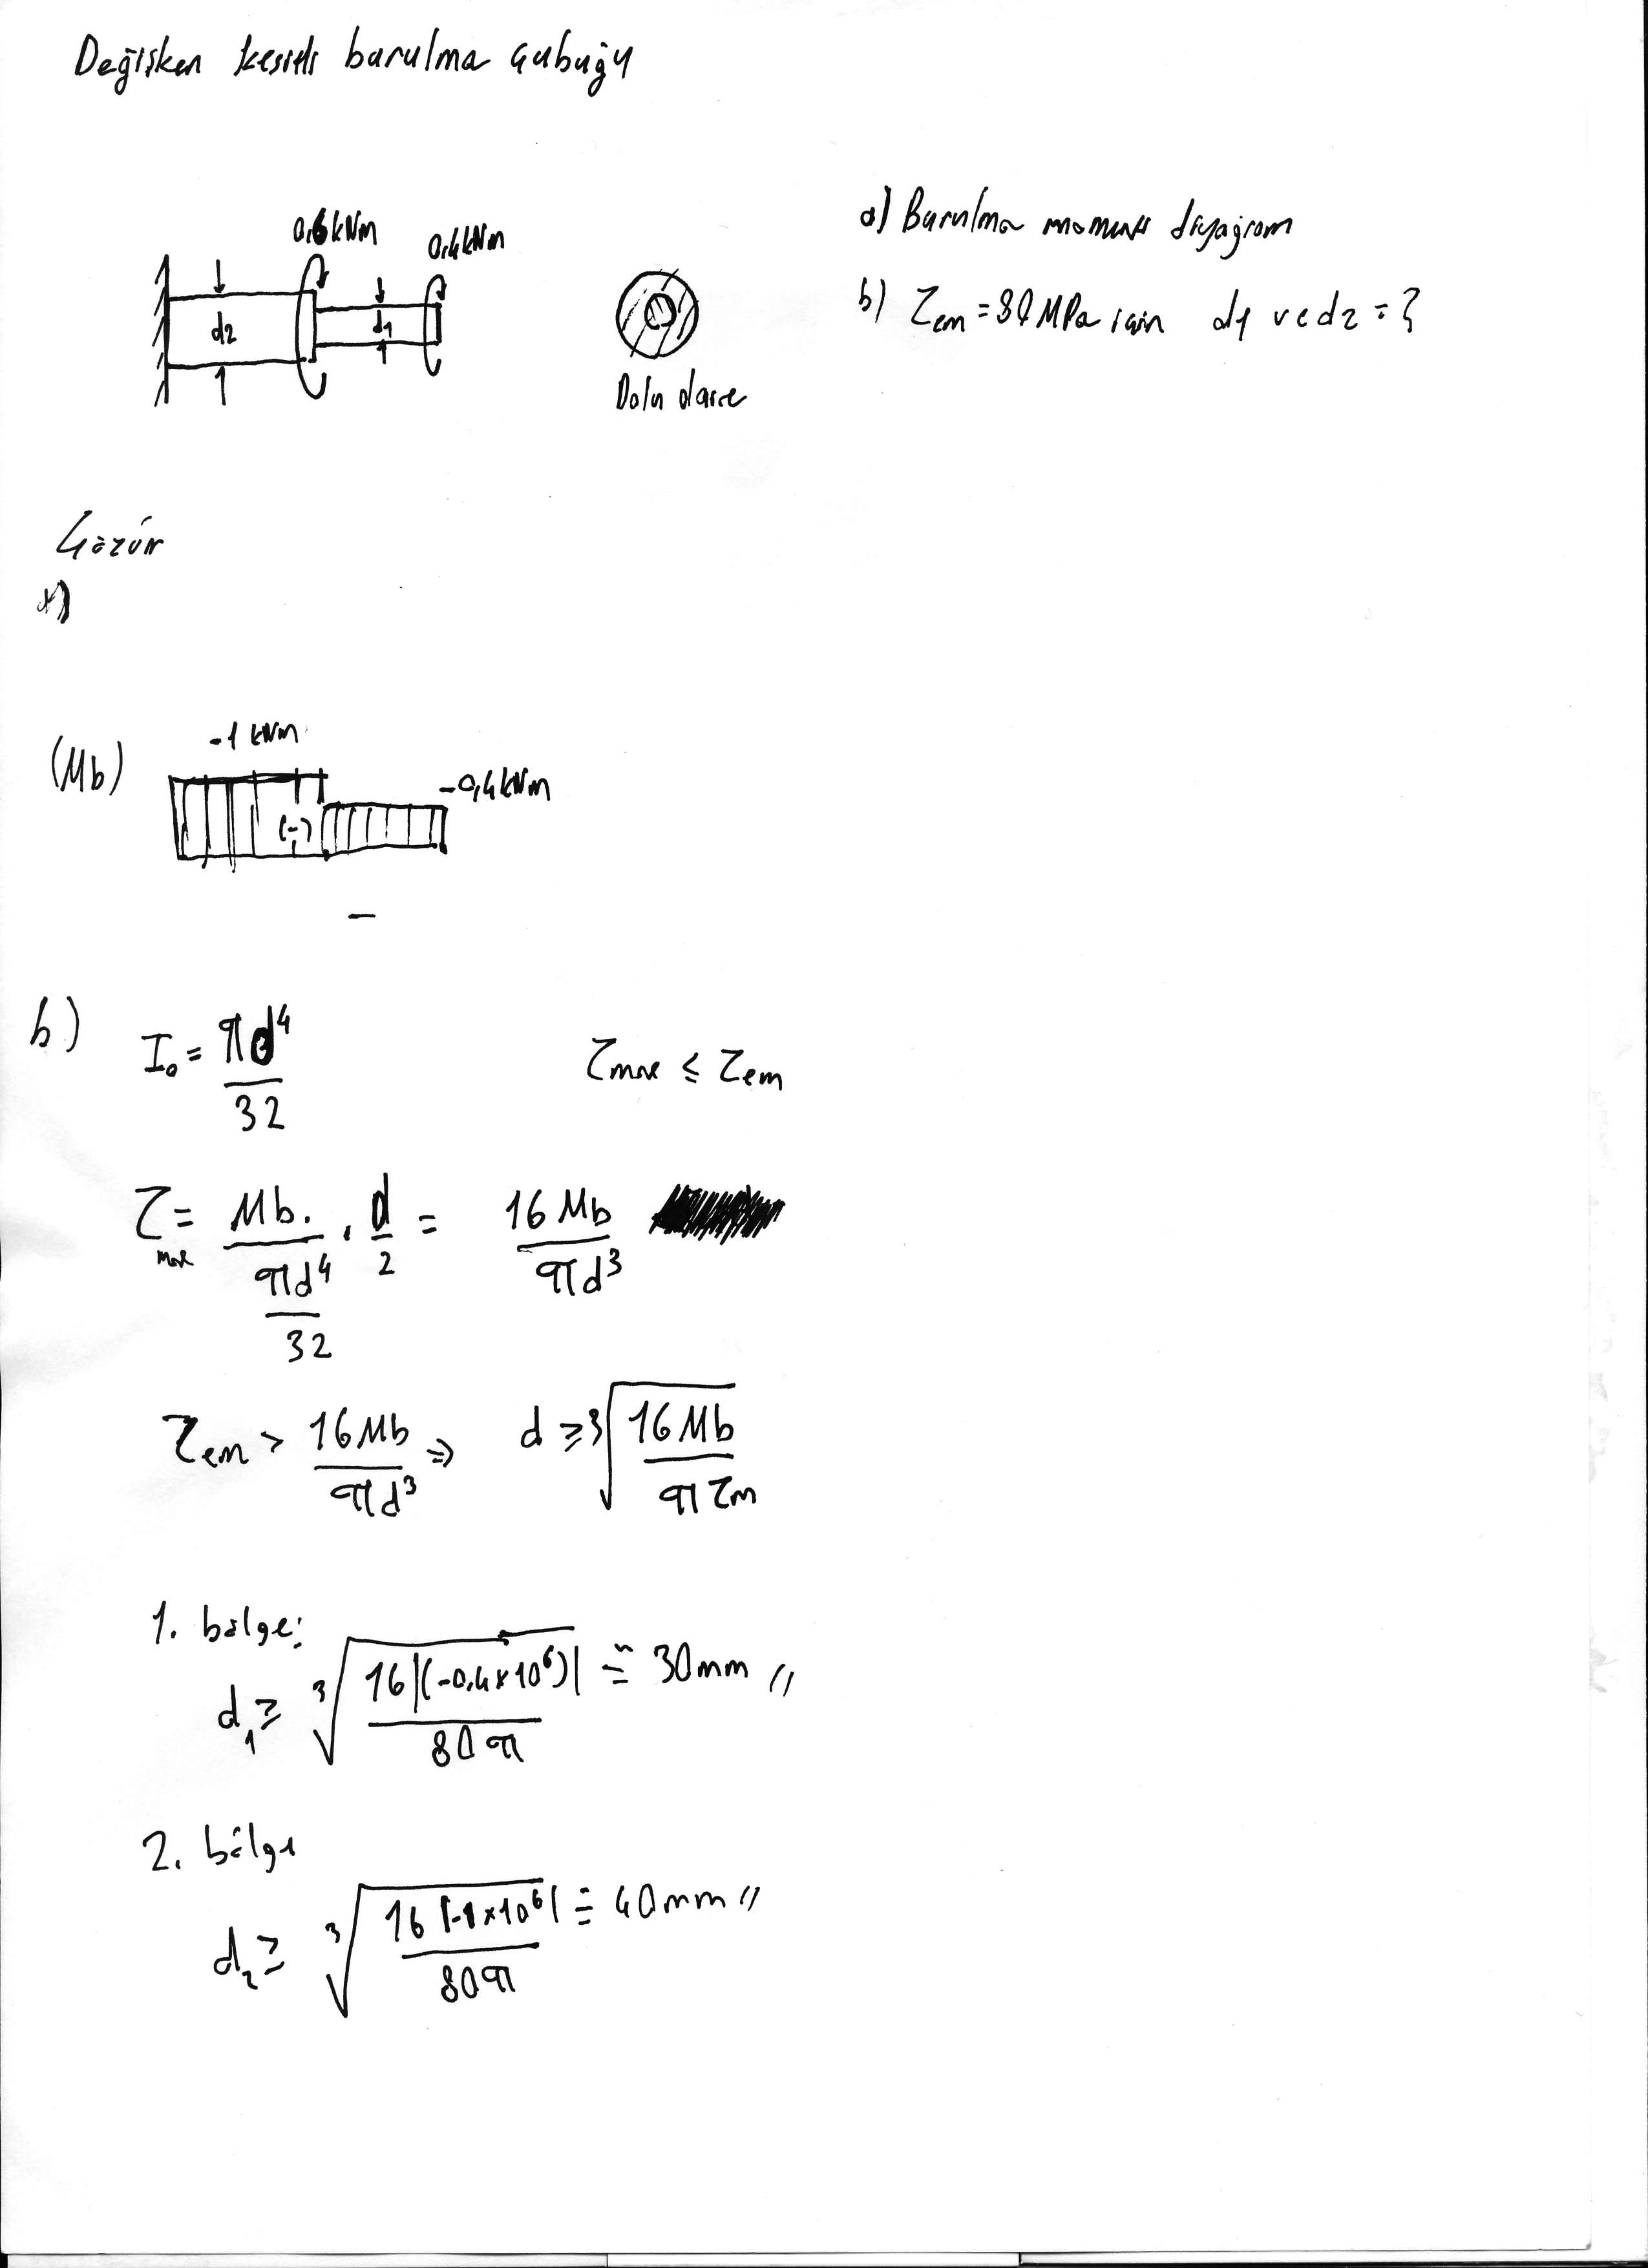 Değişken kesitli burulma çubuğu
0,6 kNm
0,4 kNm
d2
d1
Dolu daire
a) Burulma momenti diyagram
b) τem = 80 MPa için d1 ve d2 = ?
Çözüm
a)
(Mb)
-1 kNm
-0,4 kNm
(-)
b)
I₀ = πd⁴/32
τmax ≤ τem
τmax = Mb/(πd⁴/32) . d/2 = 16 Mb/πd³
τem > 16Mb/πd³ ⇒ d ≥ ∛(16Mb/πτm)
1. bölge:
d₁ ≥ ∛(16|(-0,4×10⁶)|/80π) ≅ 30mm //
2. bölge
d₂ ≥ ∛(16|-1×10⁶|/80π) ≅ 40mm //